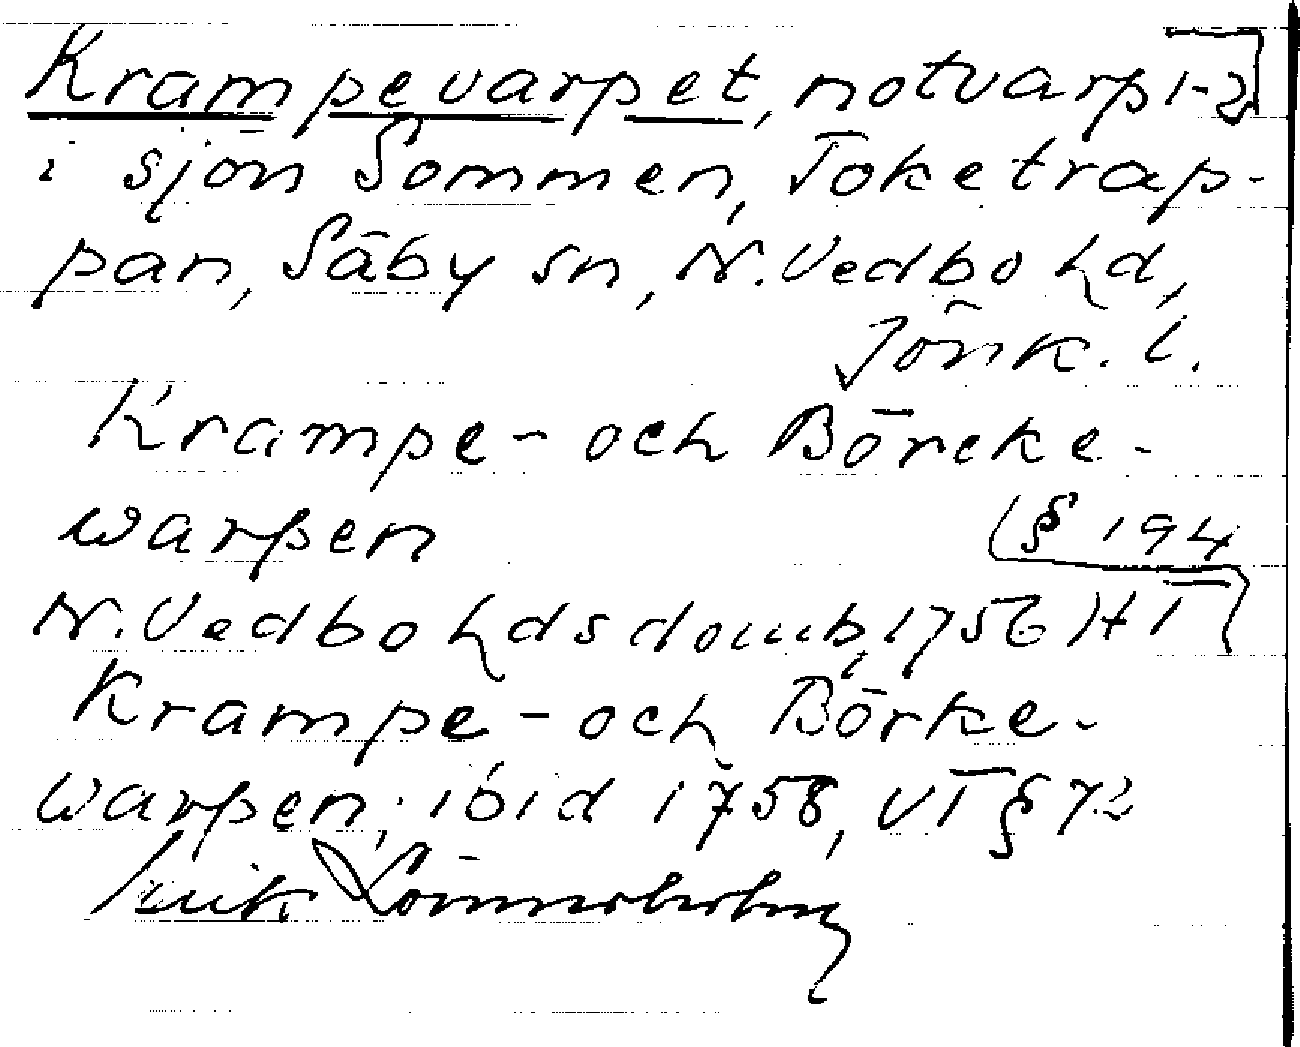 Krampevarpet, notvarp 1-2
i sjön Sommen, Toketrap-
pan, Säby sn, N. Vedbo hd,
Jönk. l.
Krampe- och Börcke-
warpen (§ 194
N. Vedbo hds domb, 1756 HT
Krampe- och Börke-
warpen; ibid 1758, VT § 72